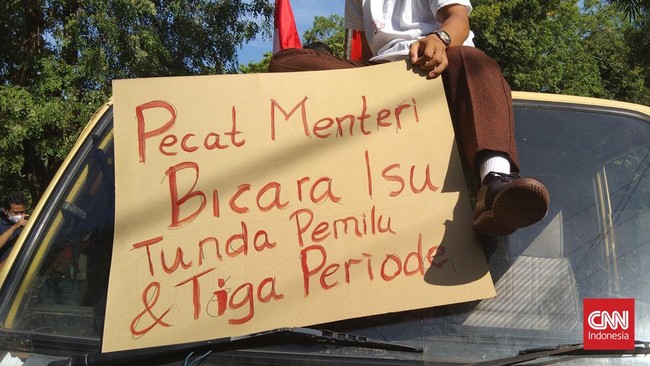 Pecat Menteri
Bicara Isu
Tunda Pemilu
& Tiga Periode
CNN
Indonesia